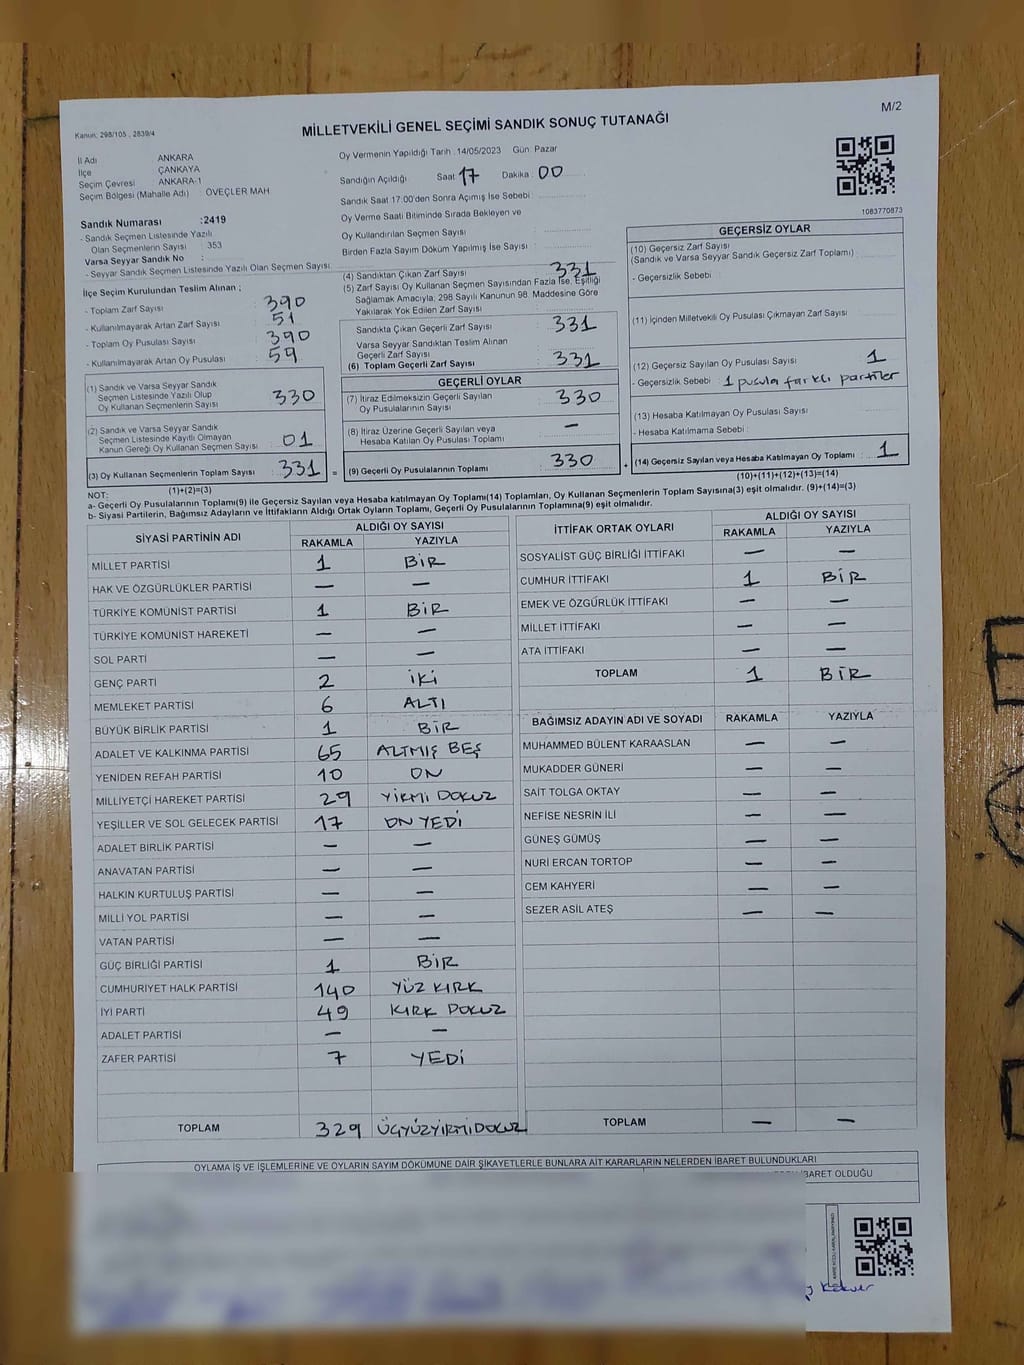 M/2
Kanun: 298/105 , 2839/4
MİLLETVEKİLİ GENEL SEÇİMİ SANDIK SONUÇ TUTANAĞI
İl Adı ANKARA
İlçe ÇANKAYA
Seçim Çevresi ANKARA-1
Seçim Bölgesi (Mahalle Adı) : ÖVEÇLER MAH
Sandık Numarası :2419
- Sandık Seçmen Listesinde Yazılı
Olan Seçmenlerin Sayısı : 353
Varsa Seyyar Sandık No :
- Seyyar Sandık Seçmen Listesinde Yazılı Olan Seçmen Sayısı:
Oy Vermenin Yapıldığı Tarih :14/05/2023 Gün: Pazar
Sandığın Açıldığı Saat 17 Dakika : 00
Sandık Saat 17:00'den Sonra Açımış İse Sebebi :
Oy Verme Saati Bitiminde Sırada Bekleyen ve
Oy Kullandırılan Seçmen Sayısı :
Birden Fazla Sayım Döküm Yapılmış İse Sayısı :
1083770873
İlçe Seçim Kurulundan Teslim Alınan ;
- Toplam Zarf Sayısı : 390
- Kullanılmayarak Artan Zarf Sayısı : 51
- Toplam Oy Pusulası Sayısı : 390
- Kullanılmayarak Artan Oy Pusulası : 59
(1) Sandık ve Varsa Seyyar Sandık
Seçmen Listesinde Yazılı Olup
Oy Kullanan Seçmenlerin Sayısı : 330
(2) Sandık ve Varsa Seyyar Sandık
Seçmen Listesinde Kayıtlı Olmayan
Kanun Gereği Oy Kullanan Seçmen Sayısı : 01
(3) Oy Kullanan Seçmenlerin Toplam Sayısı : 331
(1)+(2)=(3)
(4) Sandıktan Çıkan Zarf Sayısı : 331
(5) Zarf Sayısı Oy Kullanan Seçmen Sayısından Fazla İse, Eşitliği
Sağlamak Amacıyla; 298 Sayılı Kanunun 98. Maddesine Göre
Yakılarak Yok Edilen Zarf Sayısı :
Sandıkta Çıkan Geçerli Zarf Sayısı : 331
Varsa Seyyar Sandıktan Teslim Alınan
Geçerli Zarf Sayısı :
(6) Toplam Geçerli Zarf Sayısı : 331
GEÇERLİ OYLAR
(7) İtiraz Edilmeksizin Geçerli Sayılan
Oy Pusulalarının Sayısı : 330
(8) İtiraz Üzerine Geçerli Sayılan veya
Hesaba Katılan Oy Pusulası Toplamı : —
= (9) Geçerli Oy Pusulalarının Toplamı : 330
GEÇERSİZ OYLAR
(10) Geçersiz Zarf Sayısı
(Sandık ve Varsa Seyyar Sandık Geçersiz Zarf Toplamı) :
- Geçersizlik Sebebi :
(11) İçinden Milletvekili Oy Pusulası Çıkmayan Zarf Sayısı :
(12) Geçersiz Sayılan Oy Pusulası Sayısı : 1
- Geçersizlik Sebebi : 1 pusula farklı partiler
(13) Hesaba Katılmayan Oy Pusulası Sayısı :
- Hesaba Katılmama Sebebi :
+ (14) Geçersiz Sayılan veya Hesaba Katılmayan Oy Toplamı : 1
(10)+(11)+(12)+(13)=(14)
NOT:
a- Geçerli Oy Pusulalarının Toplamı(9) ile Geçersiz Sayılan veya Hesaba katılmayan Oy Toplamı(14) Toplamları, Oy Kullanan Seçmenlerin Toplam Sayısına(3) eşit olmalıdır. (9)+(14)=(3)
b- Siyasi Partilerin, Bağımsız Adayların ve İttifakların Aldığı Ortak Oyların Toplamı, Geçerli Oy Pusulalarının Toplamına(9) eşit olmalıdır.
SİYASİ PARTİNİN ADI ALDIĞI OY SAYISI
RAKAMLA YAZIYLA
MİLLET PARTİSİ 1 BİR
HAK VE ÖZGÜRLÜKLER PARTİSİ — —
TÜRKİYE KOMÜNİST PARTİSİ 1 BİR
TÜRKİYE KOMÜNİST HAREKETİ — —
SOL PARTİ — —
GENÇ PARTİ 2 İKİ
MEMLEKET PARTİSİ 6 ALTI
BÜYÜK BİRLİK PARTİSİ 1 BİR
ADALET VE KALKINMA PARTİSİ 65 ALTMIŞ BEŞ
YENİDEN REFAH PARTİSİ 10 ON
MİLLİYETÇİ HAREKET PARTİSİ 29 YİRMİ DOKUZ
YEŞİLLER VE SOL GELECEK PARTİSİ 17 ON YEDİ
ADALET BİRLİK PARTİSİ — —
ANAVATAN PARTİSİ — —
HALKIN KURTULUŞ PARTİSİ — —
MİLLİ YOL PARTİSİ — —
VATAN PARTİSİ — —
GÜÇ BİRLİĞİ PARTİSİ 1 BİR
CUMHURİYET HALK PARTİSİ 140 YÜZ KIRK
İYİ PARTİ 49 KIRK DOKUZ
ADALET PARTİSİ — —
ZAFER PARTİSİ 7 YEDİ
TOPLAM 329 ÜÇYÜZYİRMİDOKUZ
İTTİFAK ORTAK OYLARI ALDIĞI OY SAYISI
RAKAMLA YAZIYLA
SOSYALİST GÜÇ BİRLİĞİ İTTİFAKI — —
CUMHUR İTTİFAKI 1 BİR
EMEK VE ÖZGÜRLÜK İTTİFAKI — —
MİLLET İTTİFAKI — —
ATA İTTİFAKI — —
TOPLAM 1 BİR
BAĞIMSIZ ADAYIN ADI VE SOYADI RAKAMLA YAZIYLA
MUHAMMED BÜLENT KARAASLAN — —
MUKADDER GÜNERİ — —
SAİT TOLGA OKTAY — —
NEFİSE NESRİN İLİ — —
GÜNEŞ GÜMÜŞ — —
NURİ ERCAN TORTOP — —
CEM KAHYERİ — —
SEZER ASİL ATEŞ — —
TOPLAM — —
OYLAMA İŞ VE İŞLEMLERİNE VE OYLARIN SAYIM DÖKÜMÜNE DAİR ŞİKAYETLERLE BUNLARA AİT KARARLARIN NELERDEN İBARET BULUNDUKLARI
İBARET OLDUĞU